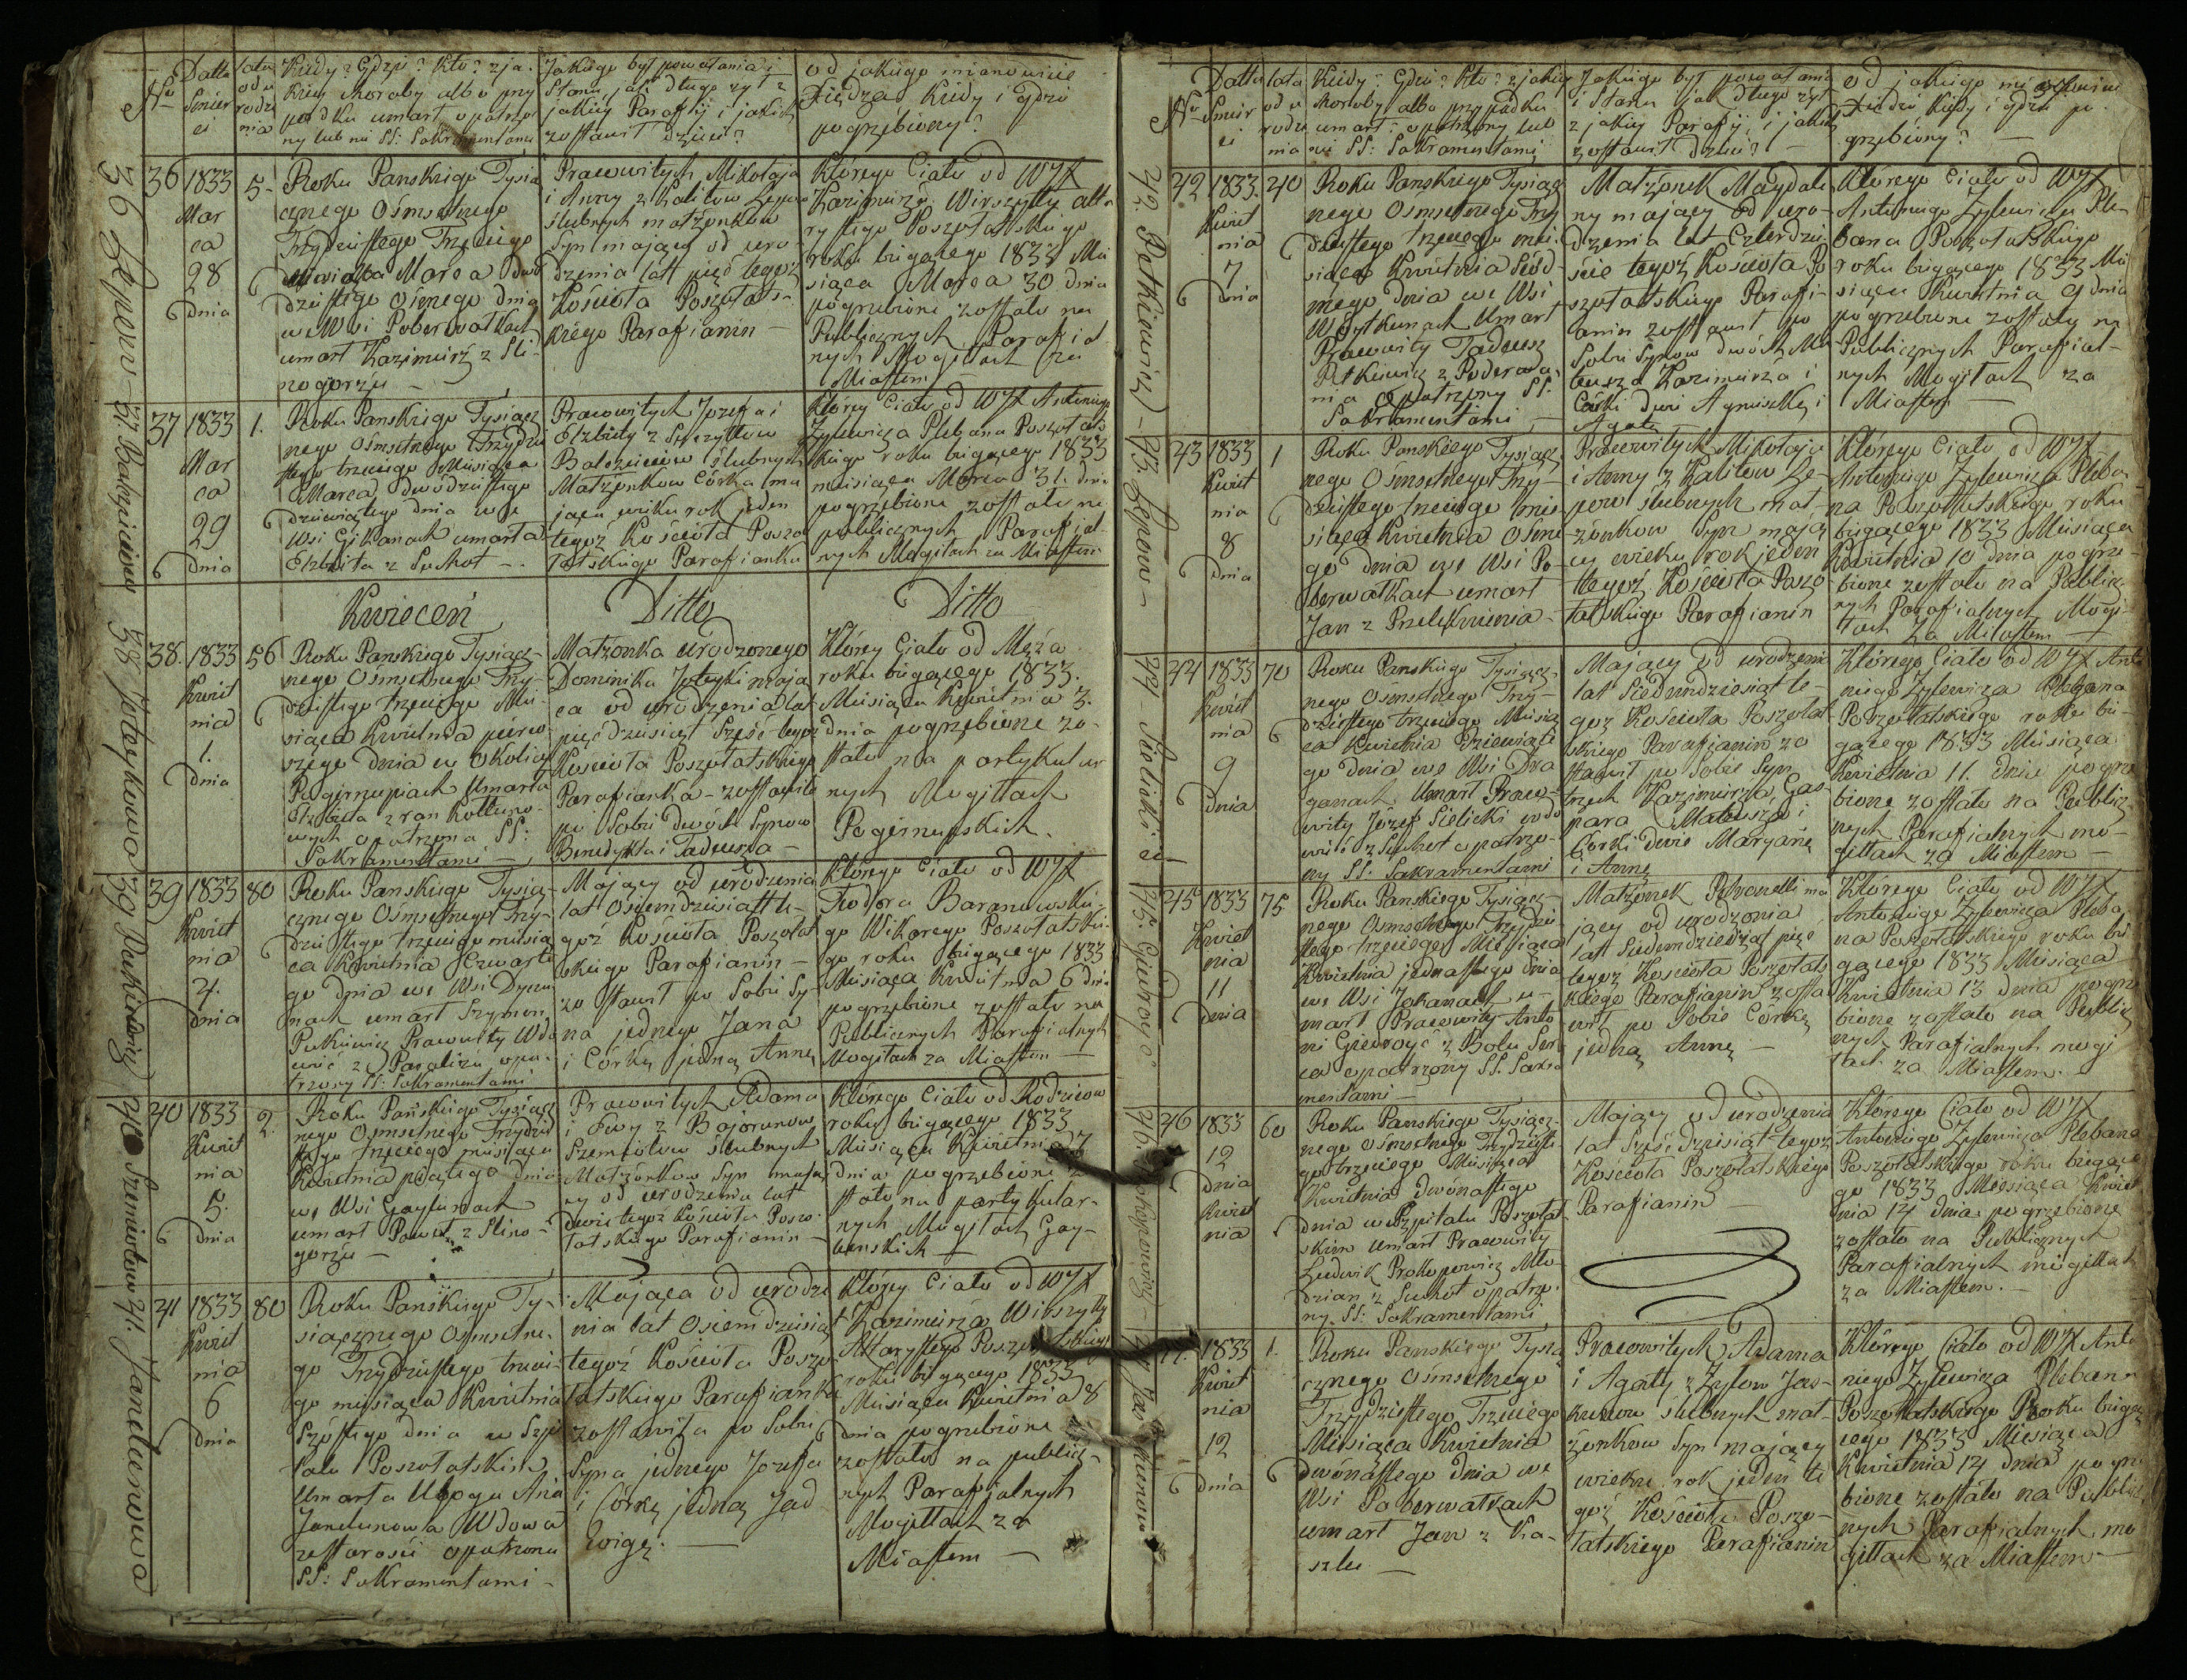 No
Datta Smierci
lata od urodzenia
Kiedy? Gdzie? Kto? z ja-
kiey choroby albo przy
padku umarł opatrzo
ny lub nie SS: Sakramentami
Jakiego był powołania i
Stanu, jak długo żył z
jakiey Parafij i jakich
zostawił dzieci?
od jakiego mianowicie
Xiędza Kiedy i gdzie
pogrzebiony?
36 1833 Marca 28 dnia 5
Roku Panskiego Tysią
cznego Ośmsetnego
Trzydziestego Trzeciego
Miesiąca Marca dwu
dziestego osmego dnia
we Wsi Poberwałkach
umarł Kazimierz z Sli-
nogorzu
Prawowitych Mikołaja
i Anny z Kalitow Lepow
slubnych małzonkow
Syn mający od uro-
dzenia lat pięć tegoż
Kościoła Poszołats-
kiego Parafianin
Którego Ciało od WJX
Kazimierza Wirszyłły Alta
rystego Poszołatskiego
roku bieżącego 1833 Mie
siąca Marca 30 dnia
pogrzebione zostało na
Publicznych Parafial
nych Mogiłach za
Miastem
37 1833 Marca 29 dnia 1.
Roku Panskiego Tysiącz
nego Ośmsetnego Trzydzie
stego trzeciego Miesiąca
Marca dwódziestego
dziewiątego dnia we
Wsi Gikanach umarła
Elzbieta z Suchot
Prawowitych Jozefa i
Elzbiety z
slubnych
Małzonkow Córka ma
jąca wieku rok jeden
tegoż Kościoła Poszo
łatskiego Parafianka
Którey Ciało od WJX Antoniego
Zylewicza Plebana Poszołat
skiego roku bieżącego 1833
miesiąca Marca 31. dnia
pogrzebione zostało na
publicznych Parafial-
nych Mogiłach za Miastem
Kwiecień
Ditto
Ditto
38. 1833 Kwietnia 1. dnia 56
Roku Panskiego Tysiącz-
nego Ośmsetnego Trzy-
dziestego trzeciego Mie-
siąca Kwietnia pierw-
szego dnia w Okolicy
Pogirnupiach Umarła
Elzbieta z ran Kołtuno-
wych opatrzona SS:
Sakramentami
Małzonka urodzonego
Dominika mają
ca od urodzenia lat
pięćdziesiąt sześć tegoż
Kościoła Poszołatskiego
Parafianka - zostawiła
po Sobie dwóch Synow
Benedykta i Tadeusza
Którey Ciało od Męża
roku bieżącego 1833.
Miesiąca Kwietnia 3.
dnia pogrzebione zo-
stało na partykular
nych Mogiłłach
Pogirnupskich.
39 1833 Kwietnia 4. dnia 80
Roku Panskiego Tysią-
cznego Ośmsetnego Trzy-
dziestego trzeciego miesią
ca Kwietnia Czwarte
go dnia we Wsi
umarł Szymon
Prawowity Wdo
wiec z Paraliżu opa-
trzony SS: Sakramentami
Mający od urodzenia
lat Osiemdziesiąt te-
goż Kościoła Poszołat
skiego Parafianin
zostawił po Sobie Sy-
na jednego Jana
i Córkę jedną Annę
Którego Ciało od WJX
Fiodora Baranowskie-
go Wikarego Poszołatskie-
go roku bieżącego 1833
Miesiąca Kwietnia 6 dnia
pogrzebione zostało na
Publicznych Parafialnych
Mogiłach za Miastem
40 1833 Kwietnia 5. dnia 2.
Roku Pańskiego Tysiącz
nego Ośmsetnego Trzydzie
stego trzeciego miesiąca
Kwietnia piątego dnia
we Wsi
umarł Paweł z Slino-
gorzu
Prawowitych Adama
i Ewy z Bojorunow
Szemiotow slubnych
Małżonkow Syn mają
cy od urodzenia lat
dwie tegoż Kościoła Poszo-
łatskiego Parafianin
Którego Ciało od Rodzicow
roku bieżącego 1833
Miesiąca Kwietnia 7
dnia pogrzebione zo
stało na partykular-
nych Mogiłach
41 1833 Kwietnia 6 dnia 80
Roku Pańskiego Ty-
siącznego Ośmsetne-
go Trzydziestego trzecie-
go miesiąca Kwietnia
Szóstego dnia w Szpi
talu Poszołatskim
Umarła Uboga Ana
Jandunowa Wdowa
ze starosci opatrzona
SS: Sakramentami
Mająca od urodze
nia lat Osiemdziesiąt
tegoż Kościoła Poszo-
łatskiego Parafianka
zostawiła po Sobie
Syna jednego Jozefa
i Córkę jedną Jad
wigę.
Którey Ciało od WJX
Kazimierza Wirszyłły
Altarystego Poszołatskiego
roku bieżącego 1833
Miesiąca Kwietnia 8
dnia pogrzebione
zostało na publicz-
nych Parafialnych
Mogiłłach za
Miastem
36 Lepow
39 Putkiewicz
40 Szemiotow
41. Jandunowa
No
Datta Smierci
lata od urodzenia
Kiedy? Gdzie? Kto? z jakiey
choroby albo przypadku
umarł? opatrzony lub
nie SS: Sakramentami
Jakiego był powołania
i Stanu jak długo żył
z jakiey Parafij, i jakich
zostawił dzieci?
od jakiego mianowicie
Xiędza Kiedy i gdzie po
grzebiony?
42 1833. Kwietnia 7 dnia 40
Roku Panskiego Tysiącz
nego Osmsetnego Trzy
dziestego trzeciego mie-
siąca Kwietnia Siód-
mego dnia we Wsi
Woytkunach Umarł
Prawowity Tadeusz
Petkiewicz z Poderwa-
nia opatrzony SS:
Sakramentami
Małżonek Magdale
ny mający od uro-
dzenia lat Czterdzie
ście tegoż Kościoła Po
szołatskiego Parafi-
anin zostawił po
Sobie Synow dwóch Ma
teusza Kazimierza i
Córki dwie Agnieszkę i
Agatę
Którego Ciało od WJX
Antoniego Zylewicza Ple-
bana Poszołatskiego
roku bieżącego 1833 Mie
siąca Kwietnia 9 dnia
pogrzebione zostało na
Publicznych Parafial-
nych Mogiłach za
Miastem
43 1833 Kwietnia 8 dnia 1
Roku Panskiego Tysiącz
nego Ośmsetnego Trzy-
dziestego trzeciego mie
siąca Kwietnia Osme
go dnia we Wsi Po-
berwałkach umarł
Jan z Przelęknienia
Prawowitych Mikołaja
i Anny z Kalitow Le-
pow slubnych mał-
żonkow Syn mają
cy wieku rok jeden
tegoż Kościoła Poszo
łatskiego Parafianin
Którego Ciało od WJX
Antoniego Zylewicza Pleba
na Poszołatskiego roku
bieżącego 1833 Miesiąca
Kwietnia 10 dnia pogrze-
bione zostało na Publicz
nych Parafialnych Mogi-
łach za Miastem
44 1833 Kwietnia 9 dnia 70
Roku Panskiego Tysiącz-
nego Osmsetnego Trzy-
dziestego trzeciego Miesią
ca Kwietnia Dziewiąte
go dnia we Wsi Dra
ganach Umarł Prawo-
wity Jozef Sielicki wdo
wiec z Suchot opatrzo-
ny SS: Sakramentami
Mający od urodzenia
lat Siedemdziesiąt te-
goż Kościoła Poszołat-
skiego Parafianin zo
stawił po Sobie Syn
trzech Kazimierza, Gas-
para Mateusza i
Córki dwie Maryannę
i Annę
Którego Ciało od WJX Anto
niego Zylewicza Plebana
Poszołatskiego roku bie-
żącego 1833 Miesiąca
Kwietnia 11. dnia pogrze
bione zostało na Publicz
nych Parafialnych mo-
giłłach za Miastem
45 1833 Kwietnia 11 dnia 75
Roku Panskiego Tysiącz-
nego Osmsetnego Trzydzie
stego trzeciego Miesiąca
Kwietnia jednastego dnia
we Wsi Jokanach u-
marł Prawowity Anto
ni Giedroyć z Bolu Ser
ca opatrzony SS. Sakra
mentami
Małżonek Petronelli ma
jący od urodzenia
lat Siedemdziesiąt pięć
tegoż Kościoła Poszołats
kiego Parafianin zosta
wił po Sobie Córkę
jedną Annę
Którego Ciało od WJX
Antoniego Zylewicza Pleba
na Poszołatskiego roku bie
żącego 1833 Miesiąca
Kwietnia 13 dnia pogrze
bione zostało na Publicz
nych Parafialnych mogi
łach za Miastem.
46 1833 12 dnia Kwietnia 60
Roku Panskiego Tysiącz-
nego ośmsetnego Trzydzieste
go trzeciego Miesiąca
Kwietnia dwónastego
dnia w Szpitalu Poszołat
skim umarł Prawowity
Ludwik Prokopowicz Mło-
dzian z Suchot opatrzo-
ny SS: Sakramentami
Mający od urodzenia
lat Sześćdziesiąt tegoż
Kościoła Poszołatskiego
Parafianin
Którego Ciało od WJX
Antoniego Zylewicza Plebana
Poszołatskiego roku bieżące
go 1833 Miesiąca Kwiet
nia 14 dnia pogrzebione
zostało na Publicznych
Parafialnych mogiłłach
za Miastem.
47. 1833 Kwietnia 12 dnia 1.
Roku Panskiego Tysią
cznego Ośmsetnego
Trzydziestego Trzeciego
Miesiąca Kwietnia
dwónastego dnia we
Wsi Poberwałkach
umarł Jan z Ka-
szlu
Prawowitych Adama
i Agaty z Zylow Jas-
kunow slubnych mał-
żonkow Syn mający
wieku rok jeden te
goż Kościoła Poszo-
łatskiego Parafianin
Którego Ciało od WJX Anto
niego Zylewicza Plebana
Poszołatskiego Roku bieżą
cego 1833 Miesiąca
Kwietnia 14 dnia pogrze
bione zostało na Publicz
nych Parafialnych mo
giłłach za Miastem
42. Petkiewicz
43 Lepow
44 Sielicki
45. Giedroyć
46. Prokopowicz